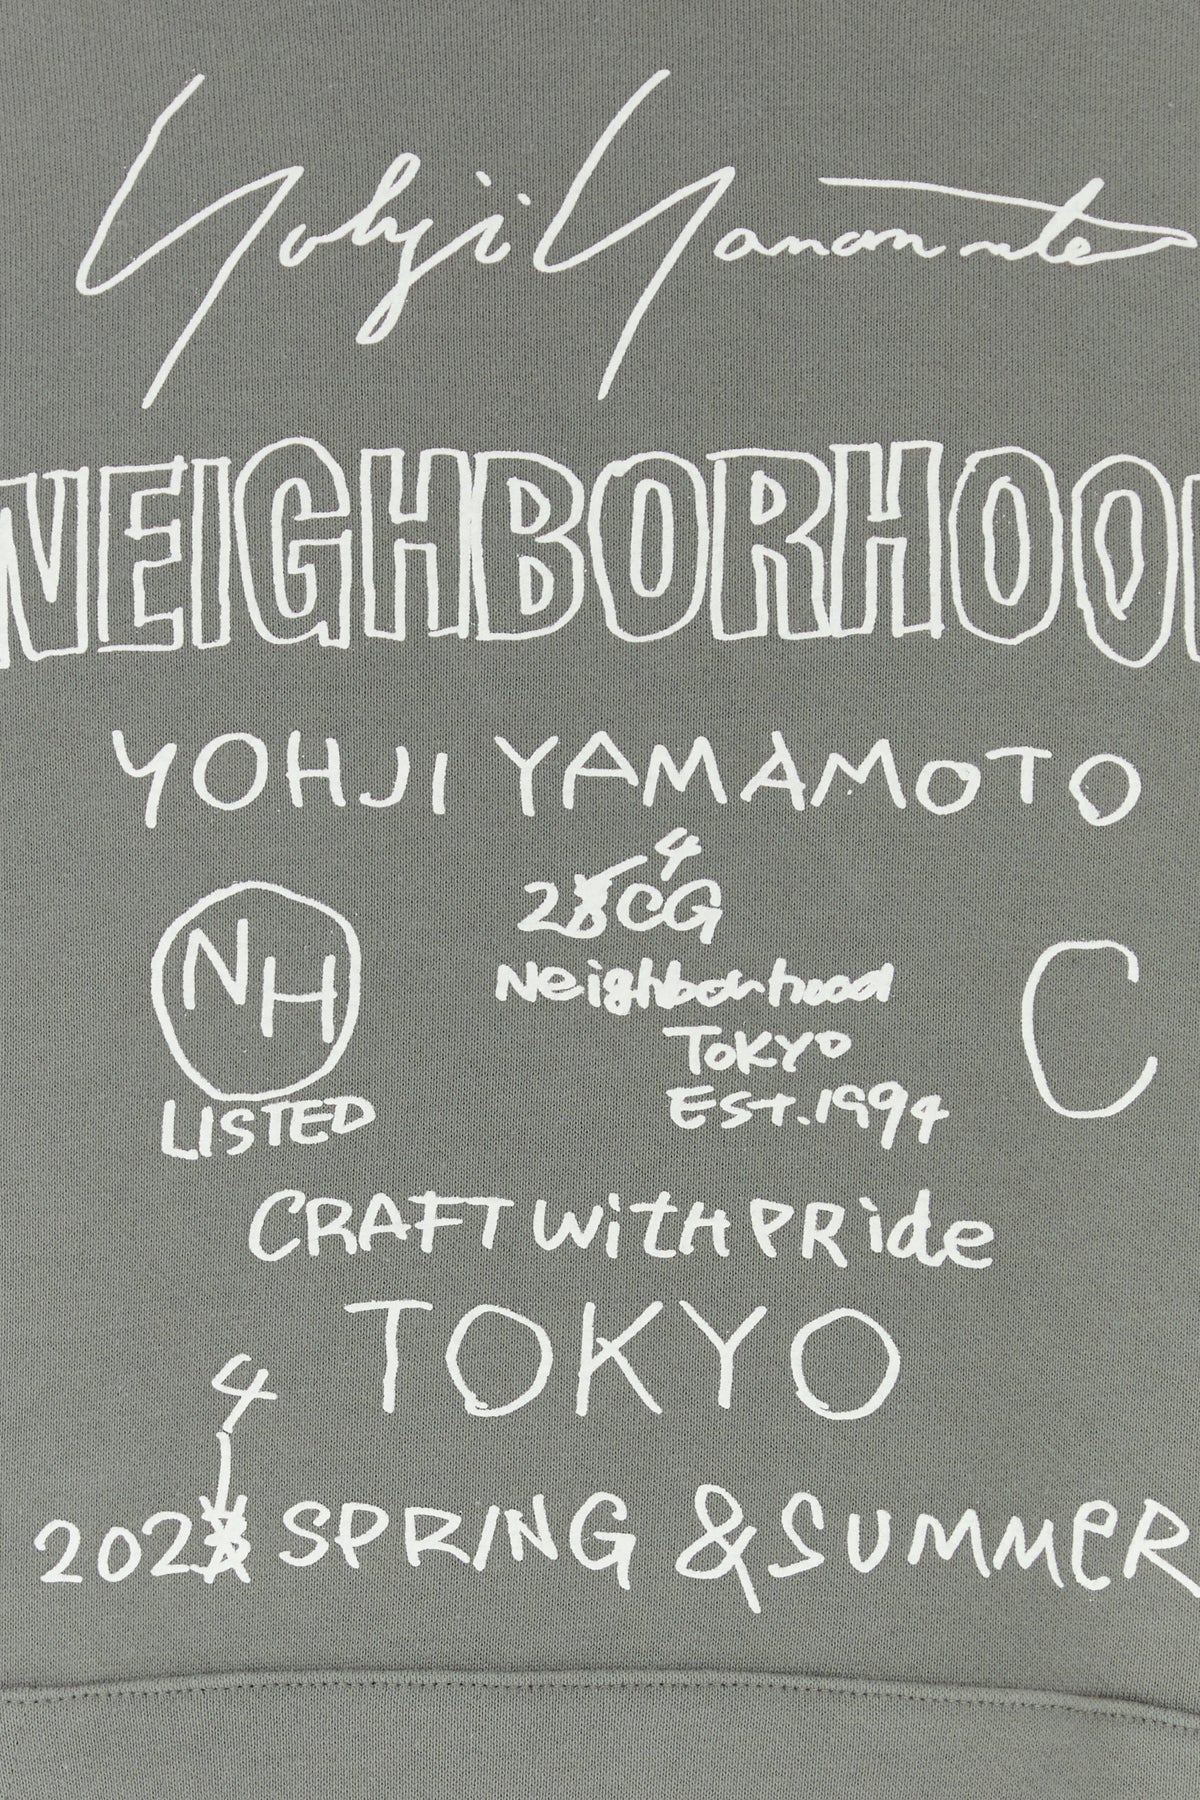 Yohji Yamamoto
NEIGHBORHOO
YOHJI YAMAMOTO
4
2 CG
NH
Neighborhood
C
TOKYO
LISTED
EST.1994
CRAFT WITH PRide
TOKYO
4
202 SPRING & SUMMER